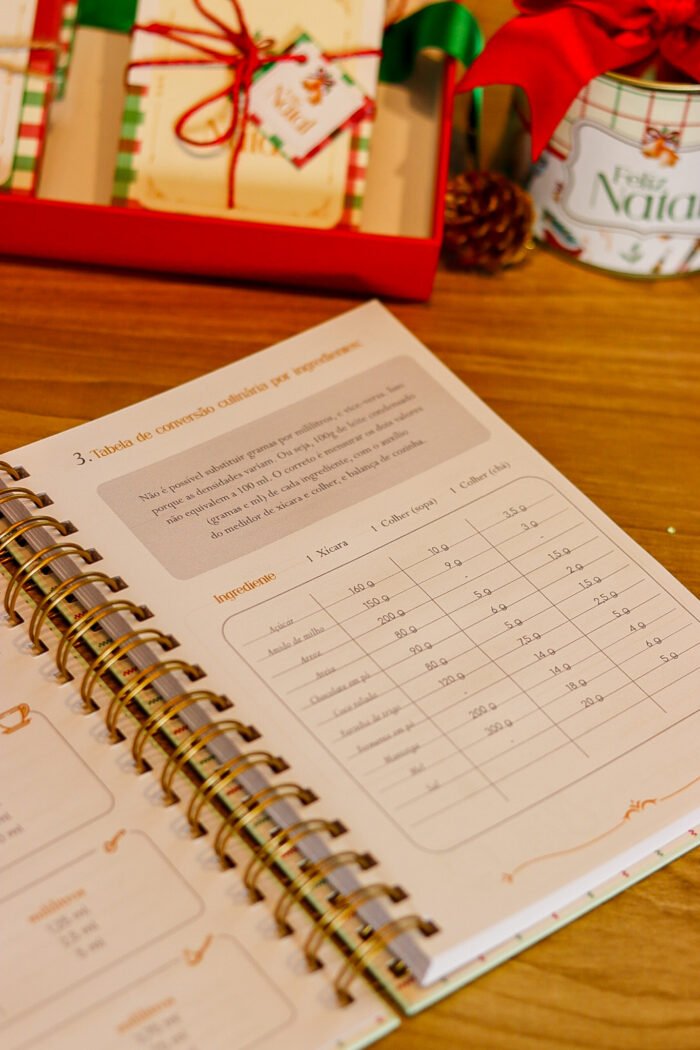 Natal
Feliz
Natal
3. Tabela de conversão culinária por ingredientes:
Não é possível substituir gramas por mililitros, e vice-versa. Isso
porque as densidades variam. Ou seja, 100g de leite condensado
não equivalem a 100 ml. O correto é mensurar os dois valores
(gramas e ml) de cada ingrediente, com o auxílio
do medidor de xícara e colher, e balança de cozinha.
Ingrediente 1 Xícara 1 Colher (sopa) 1 Colher (chá)
Açúcar 160 g 10 g 3,5 g
Amido de milho 150 g 9 g 3 g
Arroz 200 g - -
Aveia 80 g 5 g 1,5 g
Chocolate em pó 90 g 6 g 2 g
Coco ralado 80 g 5 g 1,5 g
Farinha de trigo 120 g 7,5 g 2,5 g
Fermento em pó - 14 g 5 g
Manteiga 200 g 14 g 4 g
Mel 300 g 18 g 6 g
Sal - 20 g 5 g
mililitros
mililitros